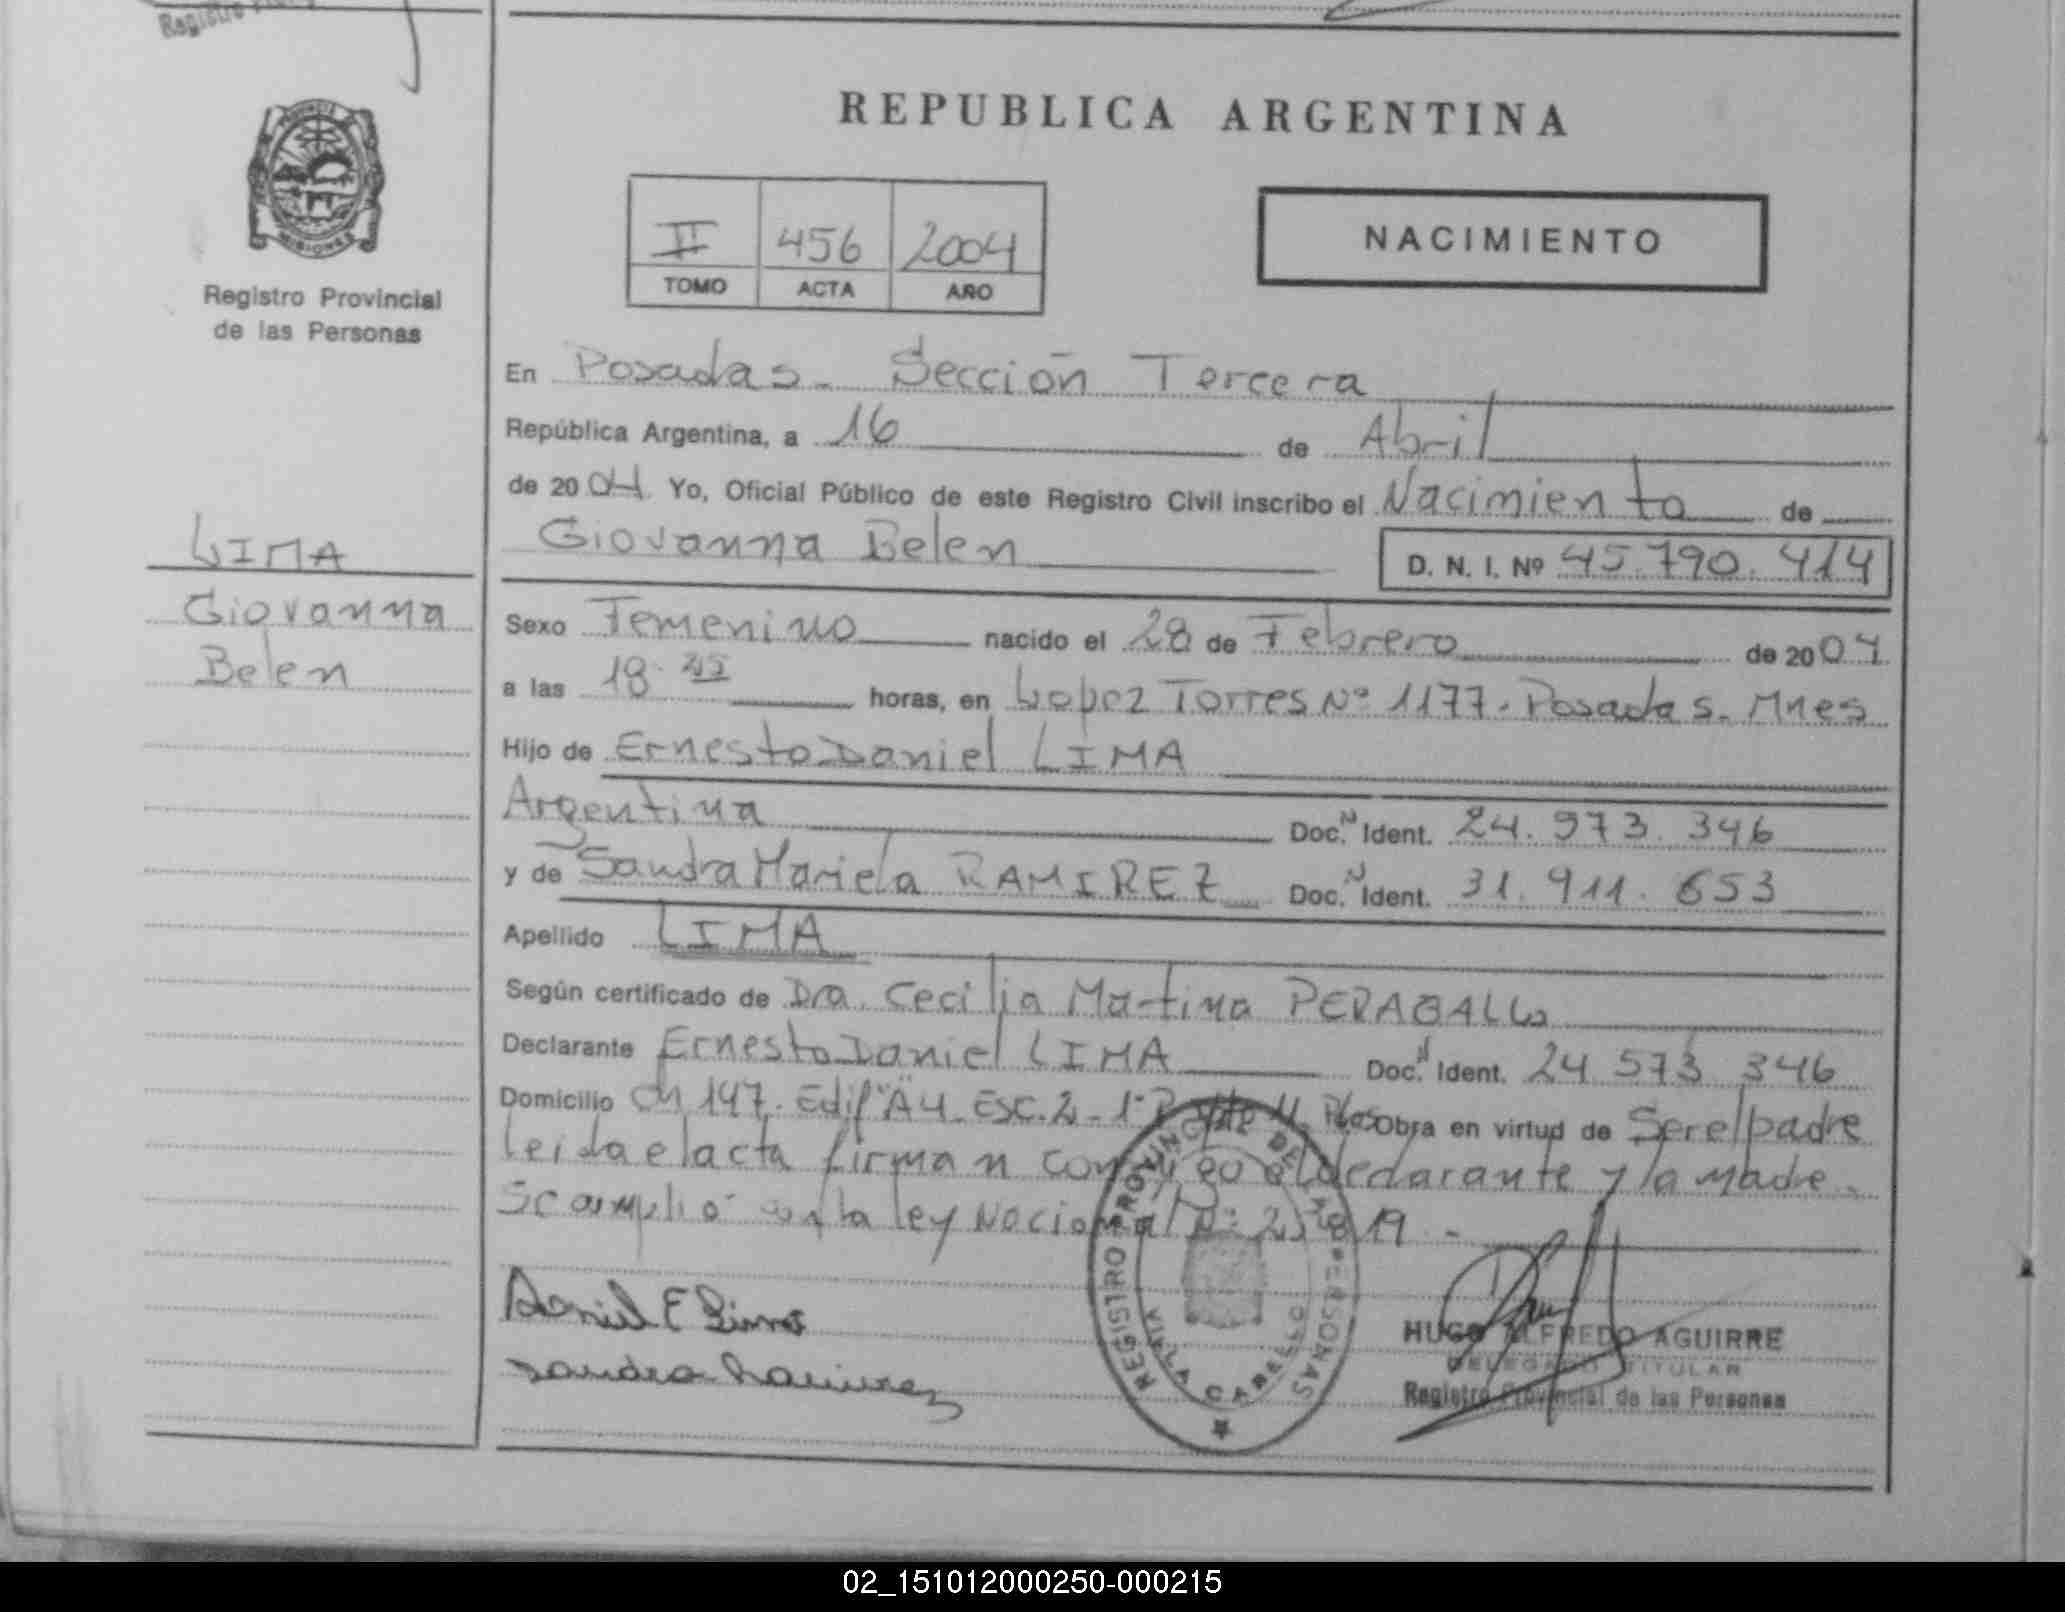 Registro
REPUBLICA ARGENTINA
PROVINCIA
MISIONES
Registro Provincial
de las Personas
II 456 2004
TOMO ACTA AÑO
NACIMIENTO
En Posadas. Sección Tercera
República Argentina, a 16 de Abril
de 2004. Yo, Oficial Público de este Registro Civil inscribo el Nacimiento de
Giovanna Belen D. N. I. Nº 45.790.414
LIMA
Giovanna
Belen
Sexo Femenino nacido el 28 de Febrero de 2004.
a las 18:45 horas, en Lopez Torres Nº 1177. Posadas. Mnes
Hijo de Ernesto Daniel LIMA
Argentina Doc. N Ident. 24.973.346
y de Sandra Mariela RAMIREZ Doc. N Ident. 31.911.653
Apellido LIMA
Según certificado de Dra. Cecilia Matina PERAGALLO
Declarante Ernesto Daniel LIMA Doc. N Ident. 24 573 346
Domicilio Ch 147. Edif "A4. Esc. 2 - 1º Obra en virtud de Ser el padre
leida el acta firman conmigo el declarante y la madre.
Se cumplió con la ley Nacional Nº 819 -
Daniel E Lima
Sandra Ramirez
REGISTRO PROVINCIAL DE LAS PERSONAS
VILLA CABELLO
HUGO ALFREDO AGUIRRE
DELEGADO TITULAR
Registro Provincial de las Personas
02_151012000250-000215